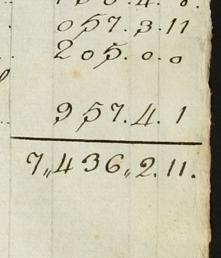 057.3.11
205.0.0
957.4.1
7,,436,,2.11.